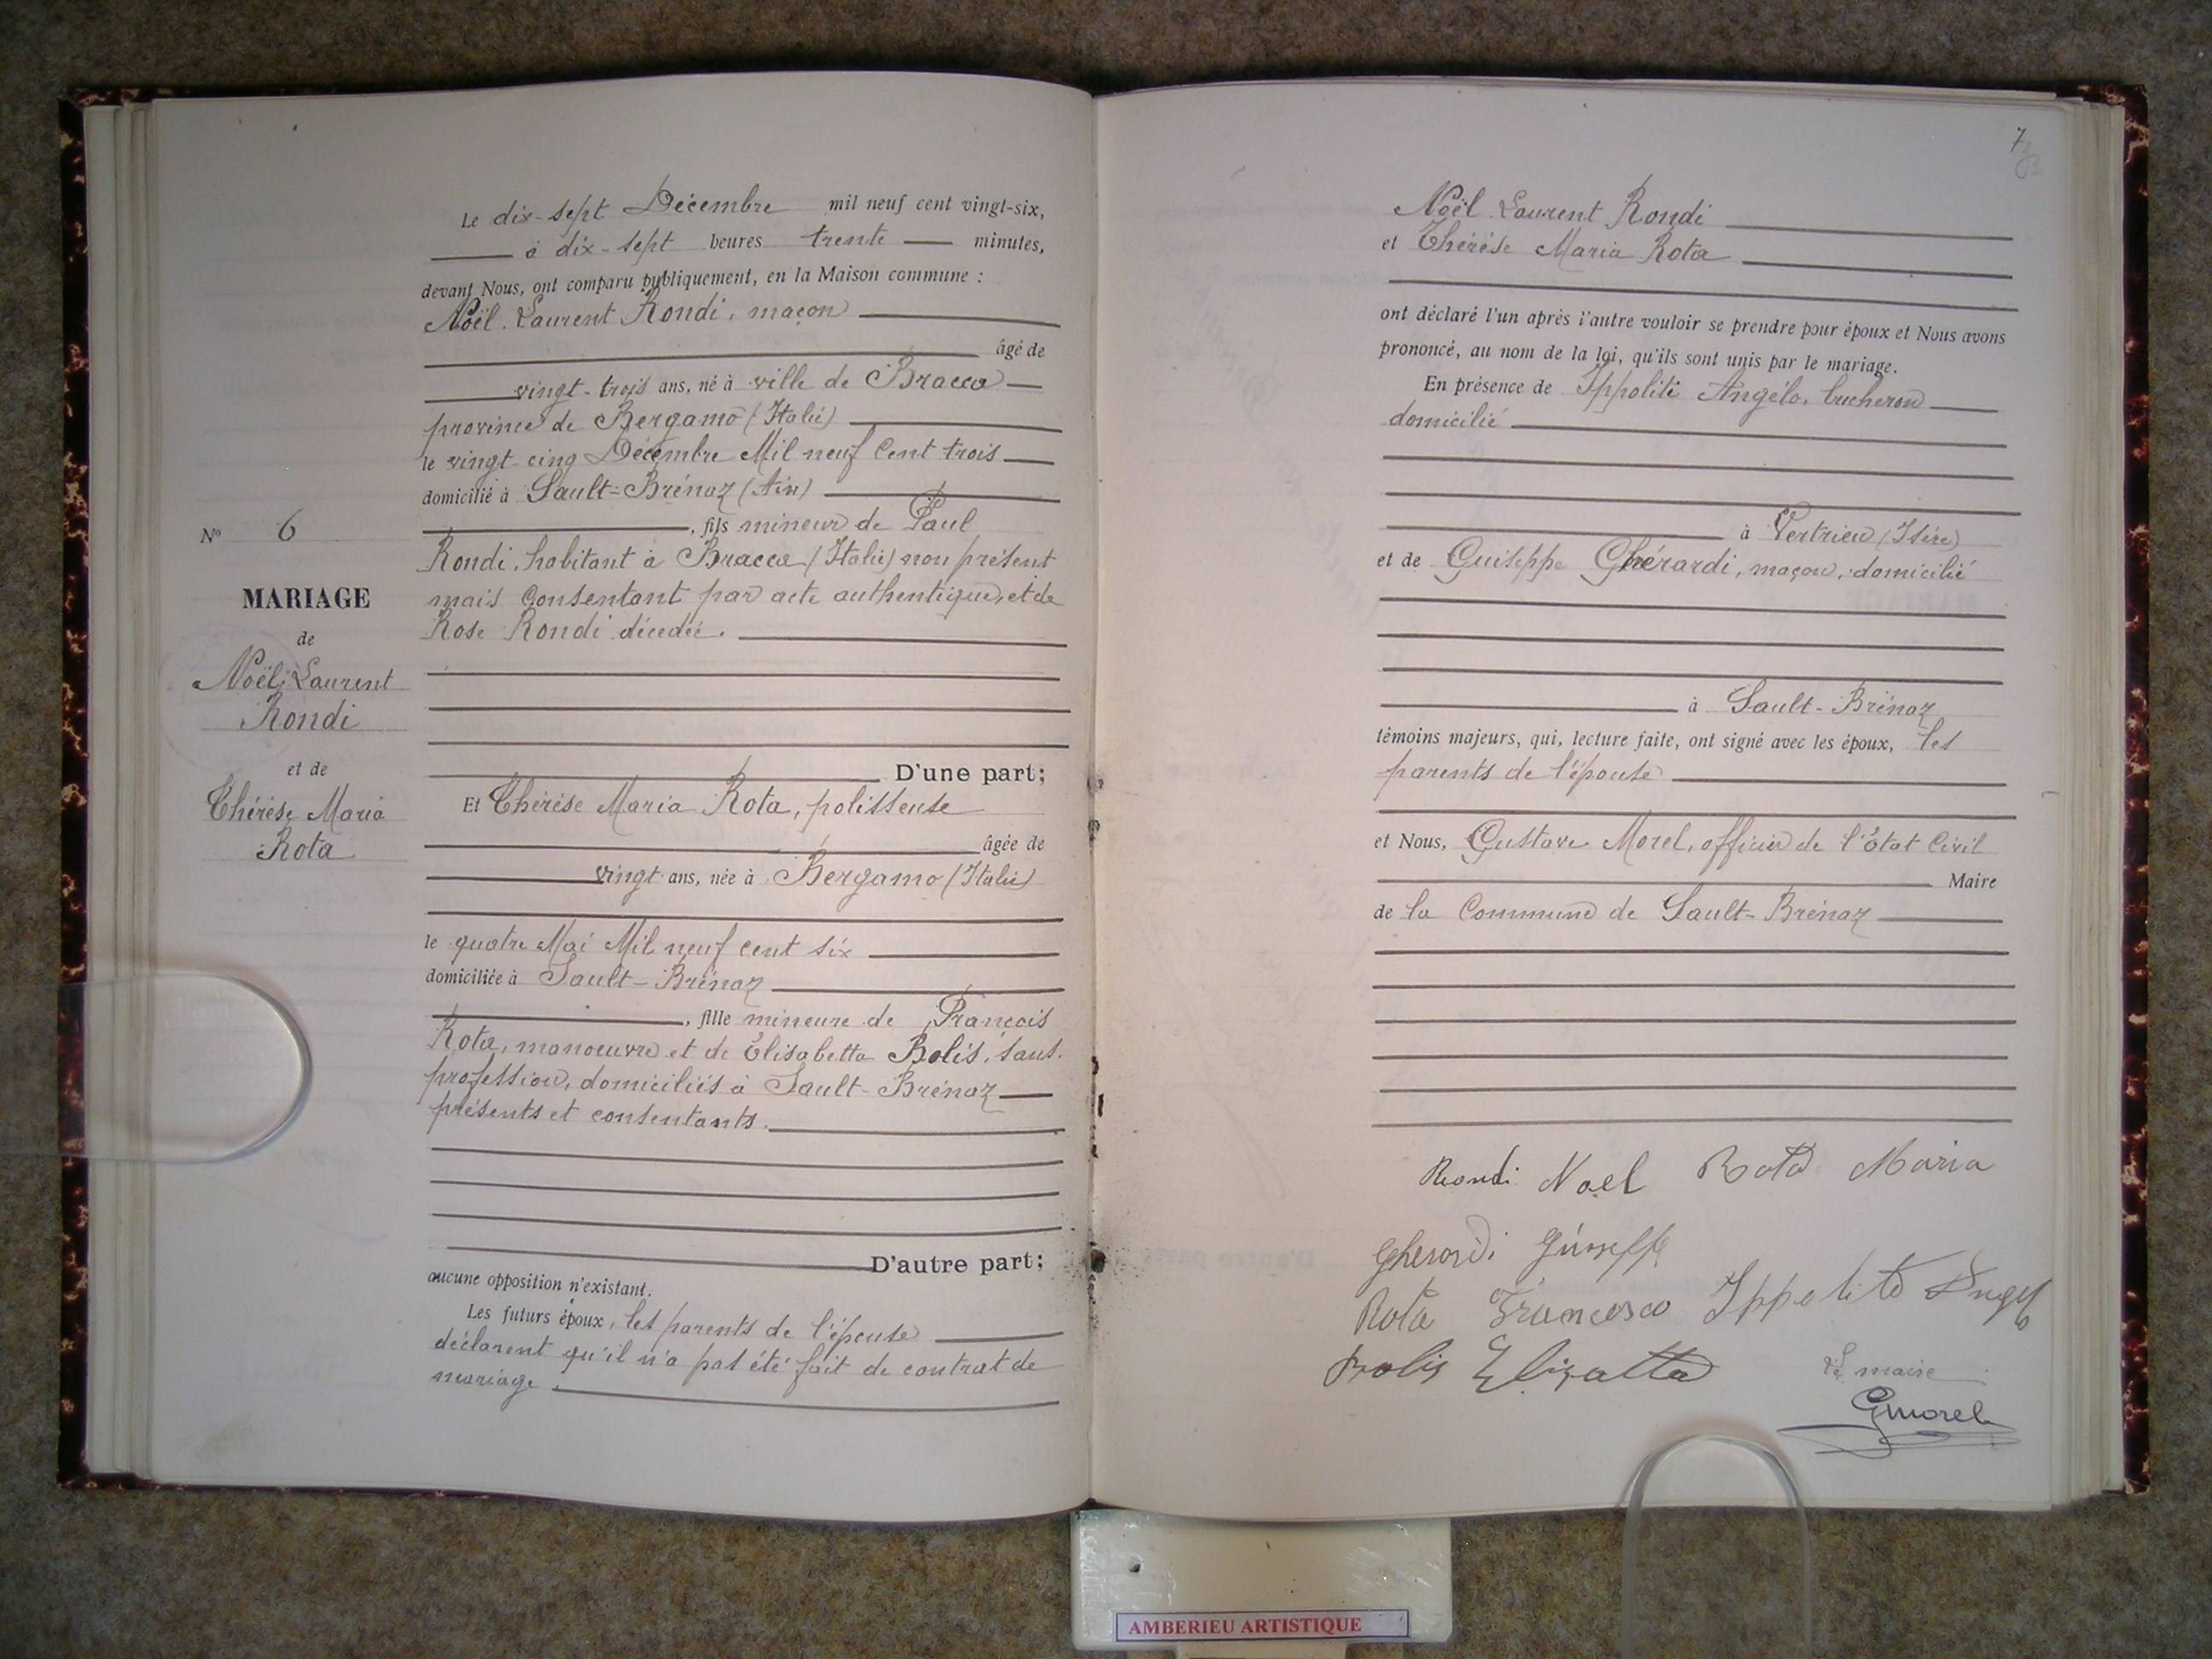 N° 6
MARIAGE
de
Noël Laurent
Rondi
et de
Thérèse Maria
Rota
Le dix-sept Décembre mil neuf cent vingt-six,
à dix-sept heures trente minutes,
devant Nous, ont comparu publiquement, en la Maison commune :
Noël Laurent Rondi, maçon
âgé de
vingt-trois ans, né à ville de Bracca
province de Bergamo (Italie)
le vingt cinq Décembre Mil neuf Cent trois
domicilié à Sault-Brénaz (Ain)
, fils mineur de Paul
Rondi, habitant à Bracca (Italie) non présent
mais Consentant par acte authentique, et de
Rose Rondi décédée.
D'une part;
Et Thérèse Maria Rota, polisseuse
âgée de
vingt ans, née à Bergamo (Italie)
le quatre Mai Mil neuf cent six
domiciliée à Sault-Brénaz
, fille mineure de François
Rota, manoeuvre et de Élisabetta Bolis, sans
profession, domiciliés à Sault-Brénaz
présents et consentants.
D'autre part;
aucune opposition n'existant.
Les futurs époux, les parents de l'épouse
déclarent qu'il n'a pas été fait de contrat de
mariage
7
Noël Laurent Rondi
et Thérèse Maria Rota
ont déclaré l'un après l'autre vouloir se prendre pour époux et Nous avons
prononcé, au nom de la loi, qu'ils sont unis par le mariage.
En présence de Ippoliti Angélo, bucheron
domicilié
à Vertrieu (Isère)
et de Guiseppe Ghérardi, maçon, domicilié
à Sault-Brénaz
témoins majeurs, qui, lecture faite, ont signé avec les époux, les
parents de l'épouse
et Nous, Gustave Morel, officier de l'État Civil
Maire
de la Commune de Sault-Brénaz
Rondi Noel Rota Maria
Gherardi Giuseppe
Rota Francesco Ippolito Angelo
Bolis Elisatta
Le maire
GMorel
AMBERIEU ARTISTIQUE